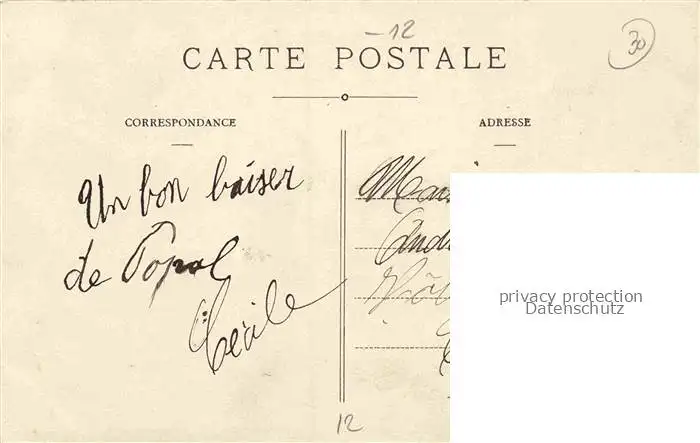 -12
30
CARTE POSTALE
CORRESPONDANCE
ADRESSE
Un bon baiser
de Popol
Cécile
privacy protection
Datenschutz
12